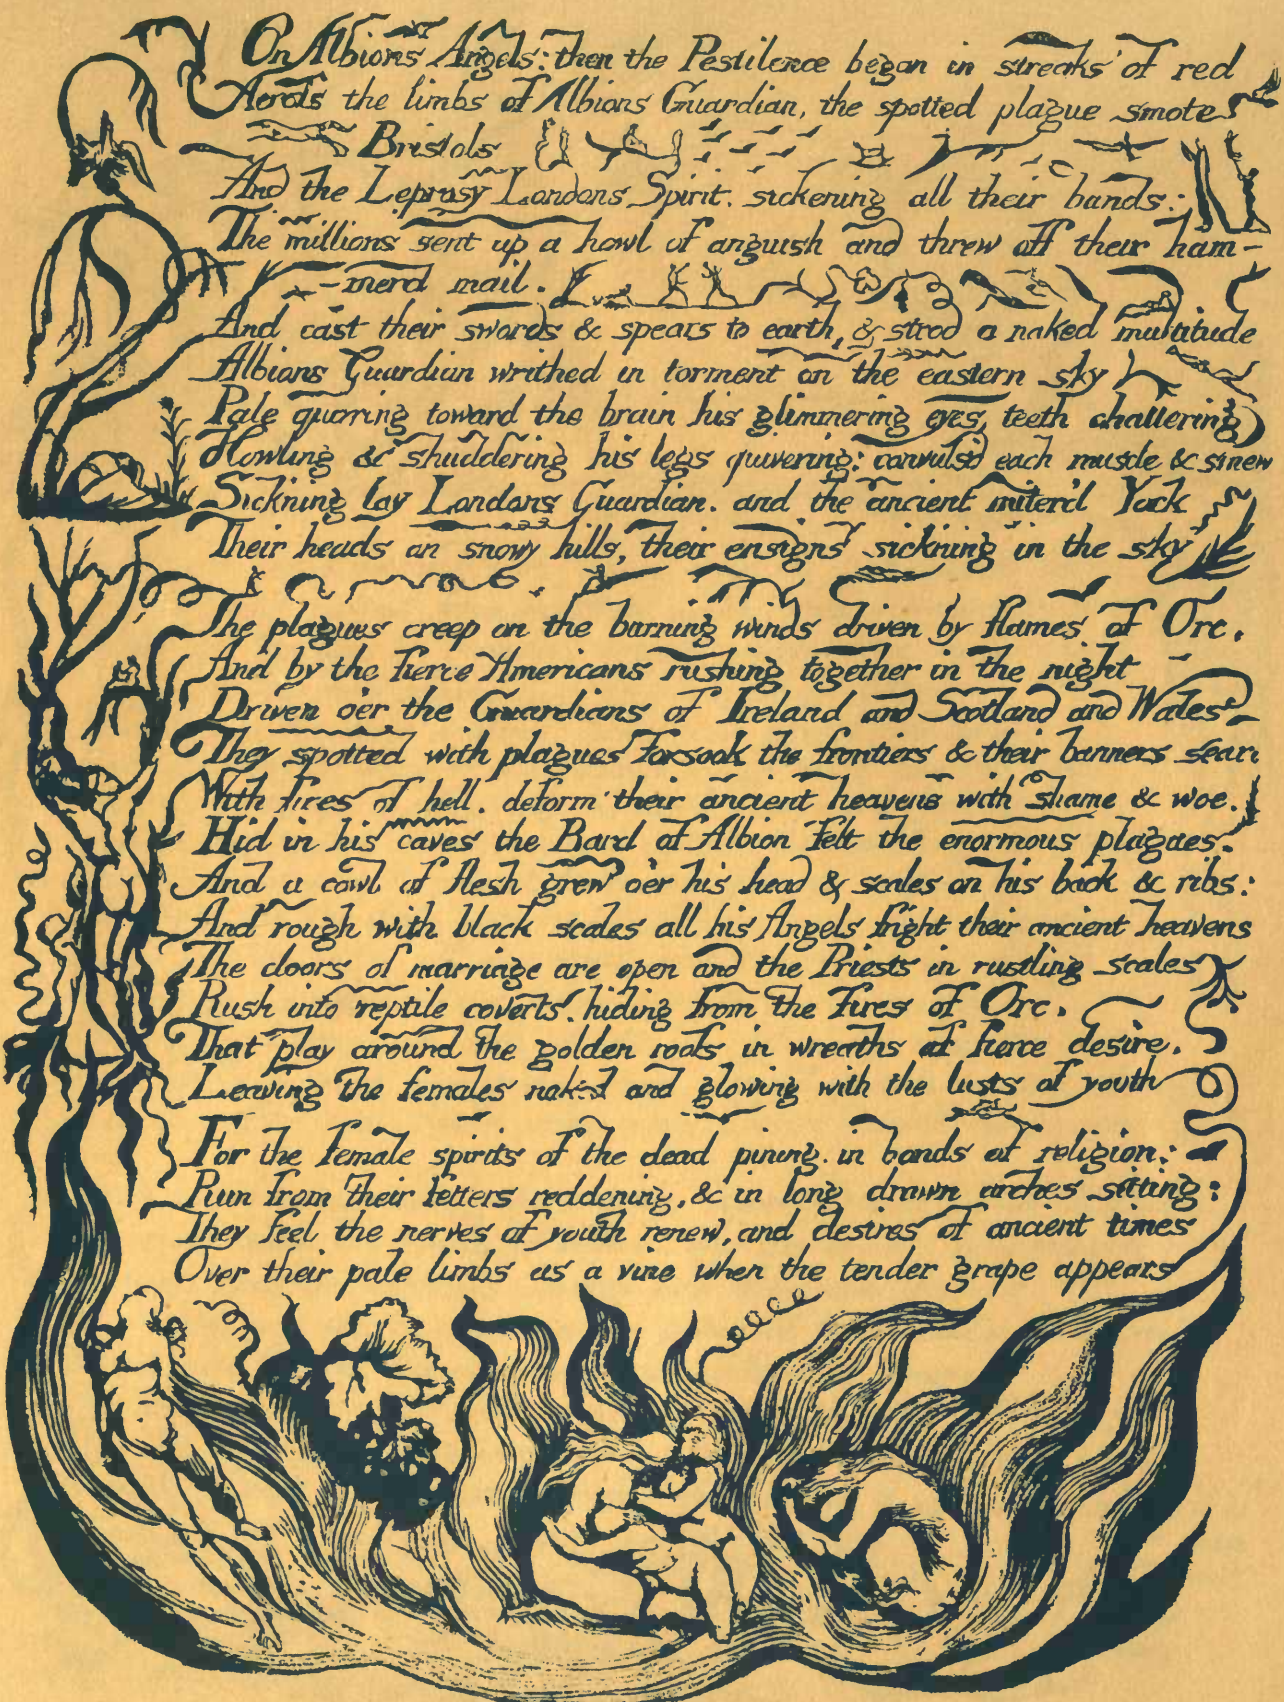 On Albions Angels: then the Pestilence began in streaks of red
Across the limbs of Albions Guardian, the spotted plague smote
Bristols
And the Leprosy Londons Spirit. sickening all their bands:
The millions sent up a howl of anguish and threw off their ham-
-merd mail.
And cast their swords & spears to earth, & stood a naked multitude
Albions Guardian writhed in torment on the eastern sky
Pale quivring toward the brain his glimmering eyes, teeth chattering
Howling & shuddering his legs quivering; convuls'd each muscle & sinew
Sick'ning lay Londons Guardian. and the ancient miter'd York
Their heads on snowy hills, their ensigns sick'ning in the sky
The plagues creep on the burning winds driven by flames of Orc.
And by the fierce Americans rushing together in the night
Driven o'er the Guardians of Ireland and Scotland and Wales
They spotted with plagues forsook the frontiers & their banners seard
With fires of hell. deform their ancient heavens with shame & woe.
Hid in his caves the Bard of Albion felt the enormous plagues.
And a cowl of flesh grew o'er his head & scales on his back & ribs:
And rough with black scales all his Angels fright their ancient heavens
The doors of marriage are open and the Priests in rustling scales
Rush into reptile coverts. hiding from the fires of Orc.
That play around the golden roofs in wreaths of fierce desire.
Leaving the females naked and glowing with the lusts of youth
For the female spirits of the dead pining. in bonds of religion:
Run from their fetters reddening. & in long drawn arches sitting:
They feel the nerves of youth renew, and desires of ancient times
Over their pale limbs as a vine when the tender grape appears